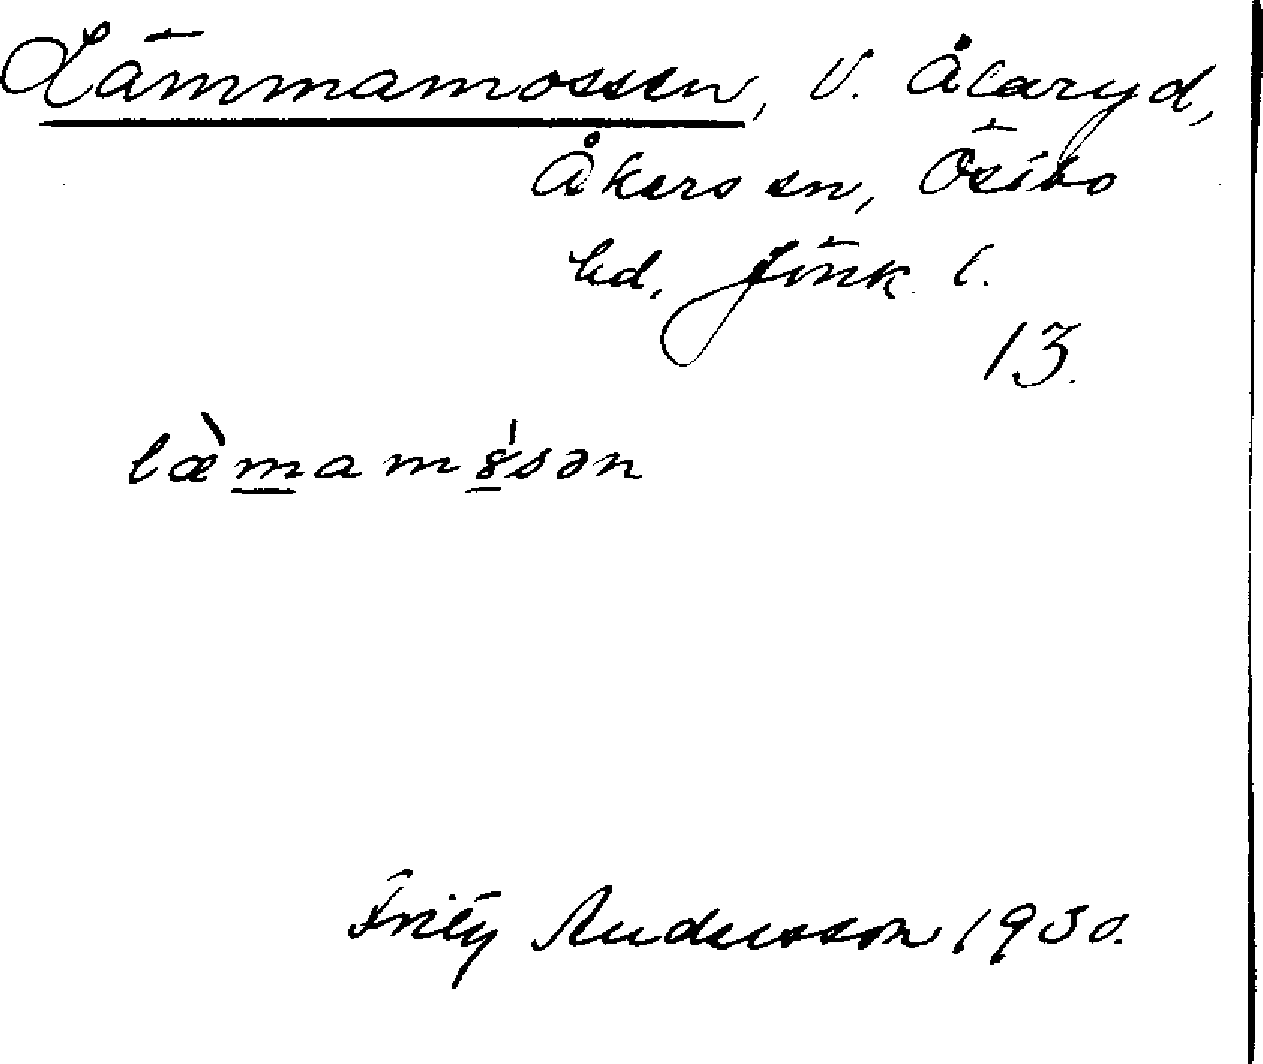 Lämmamossen, V. Ålaryd,
Åkers sn, Östbo
hd, Jönk. l.
13.
læ̀mamȣ́sən
Fritz Andersson 1930.